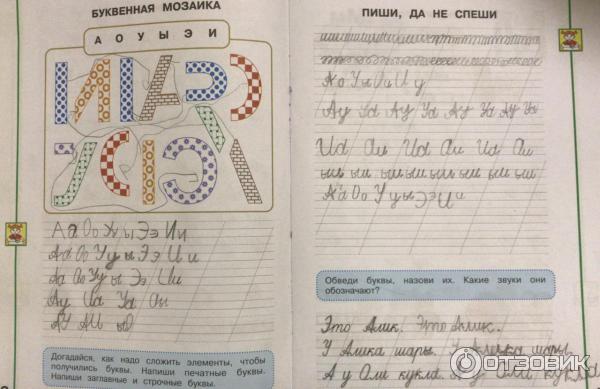 БУКВЕННАЯ МОЗАИКА
А О У Ы Э И
Аа Оо Уу ы Ээ Ии
Аа Оо Уу ы Ээ Ии
Аа Оо Уу ы Ээ Ии
Ау Иа Уа
АУ АИ
Догадайся, как надо сложить элементы, чтобы
получились буквы. Напиши печатные буквы.
Напиши заглавные и строчные буквы.
ПИШИ, ДА НЕ СПЕШИ
Ау Уа Ау Уа Ау Уа Ау Уа
Иа Аи Иа Аи Иа Аи
Аа Оо Уу ы Ээ Ии
Обведи буквы, назови их. Какие звуки они
обозначают?
Это Алик. Это Алик.
У Алика шары. У Алика шары.
А у Оли кукла. А у Оли кукла.
ОТЗОВИК